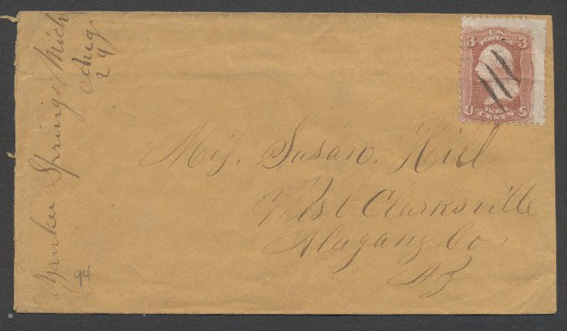 Yankee Springs Mich
Aug
29
Mis. Susan. Hill
West Clarksville
Alagany Co
NY
94
3 3
U.S. POSTAGE
U THREE CENTS S